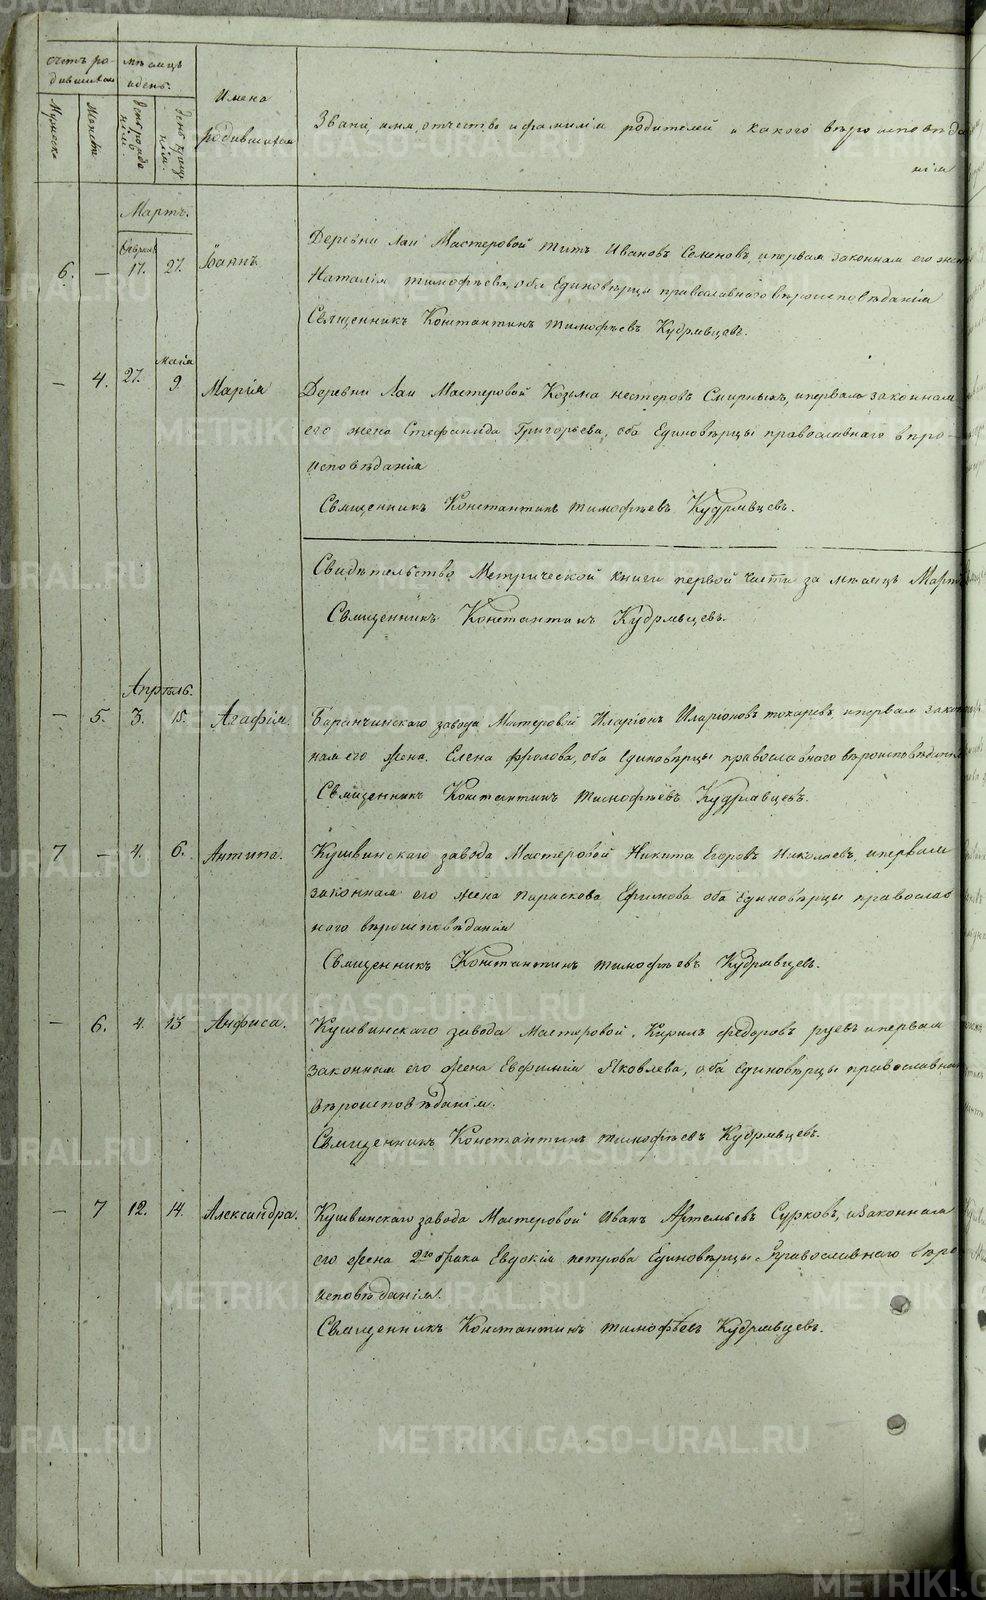 Счетъ ро-
дившихся
Мужеска
Женска
Мѣсяцъ
и день.
день рожде
нія.
день креще
нія.
Имена
родившихся
Званіе, имя, отчество и фамилія родителей и какого вѣроисповѣда
нія
Мартъ.
6. — 17. 27. Іоаннъ
Деревни Лаи Мастеровой Титъ Ивановъ Семеновъ, и первая законная его жена
Наталія Тимофѣева, оба Единовѣрцы православнаго вѣроисповѣданія
Священникъ Константинъ Тимофѣевъ Кудрявцевъ.
— 4. 27. Маія 9. Марія
Деревни Лаи Мастеровой Козьма Несторовъ Смирныхъ, и первая законная
его жена Стефанида Григорьева, оба Единовѣрцы православнаго вѣро-
исповѣданія
Священникъ Константинъ Тимофѣевъ Кудрявцевъ.
Свидѣтельство Метрической книги первой части за мѣсяцъ Мартъ
Священникъ Константинъ Кудрявцевъ.
Апрѣль.
— 5. 3. 15. Агафія.
Баранчинскаго завода Мастеровой Иларіонъ Иларіоновъ Токаревъ, и первая закон
ная его жена Елена Фролова, оба Единовѣрцы православнаго вѣроисповѣданія
Священникъ Константинъ Тимофѣевъ Кудрявцевъ.
7 — 4. 6. Антипа.
Кушвинскаго завода Мастеровой Никита Егоровъ Николаевъ, и первая
законная его жена Параскова Ефимова оба Единовѣрцы православ
наго вѣроисповѣданія
Священникъ Константинъ Тимофѣевъ Кудрявцевъ.
— 6. 4. 13 Анфиса.
Кушвинскаго завода Мастеровой Кирилъ Федоровъ Руевъ и первая
законная его жена Евфимія Яковлева, оба Единовѣрцы православнаго
вѣроисповѣданія.
Священникъ Константинъ Тимофѣевъ Кудрявцевъ.
— 7 12. 14. Александра.
Кушвинскаго завода Мастеровой Иванъ Артемьевъ Сурковъ, и законная
его жена 2го брака Евдокія Петрова Единовѣрцы Православнаго вѣро
исповѣданія.
Священникъ Константинъ Тимофѣевъ Кудрявцевъ.
METRIKI.GASO-URAL.RU